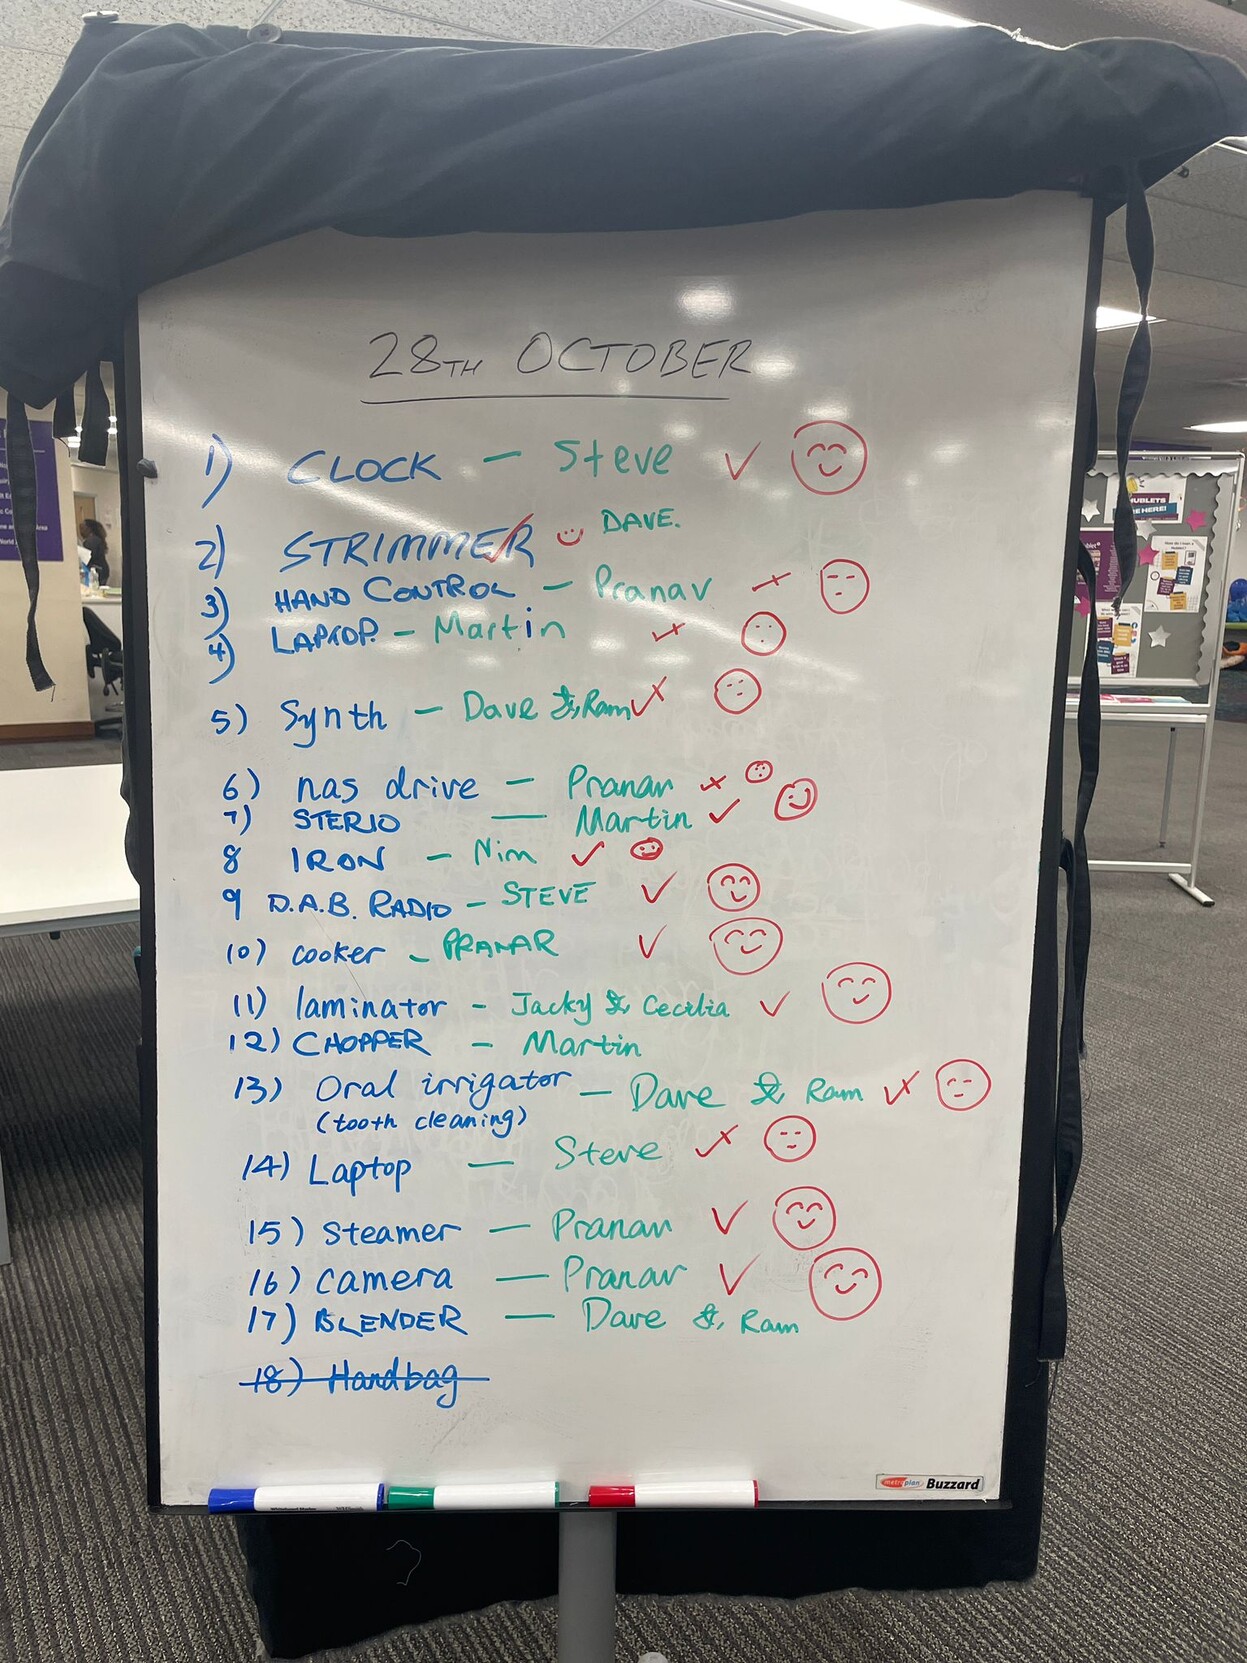 28TH OCTOBER
1) CLOCK — Steve ✓
2) STRIMMER ✓ DAVE.
3) HAND CONTROL — Pranav
4) LAPTOP. — Martin
5) Synth — Dave & Ram
6) nas drive — Pranav
7) STERIO — Martin ✓
8 IRON — Nim ✓
9 D.A.B. RADIO — STEVE ✓
10) cooker — PRANAR ✓
11) laminator — Jacky & Cecilia ✓
12) CHOPPER — Martin
13) Oral irrigator — Dave & Ram
(tooth cleaning)
14) Laptop — Steve
15) Steamer — Pranav ✓
16) camera — Pranav ✓
17) BLENDER — Dave & Ram
18) Handbag
metroplan Buzzard